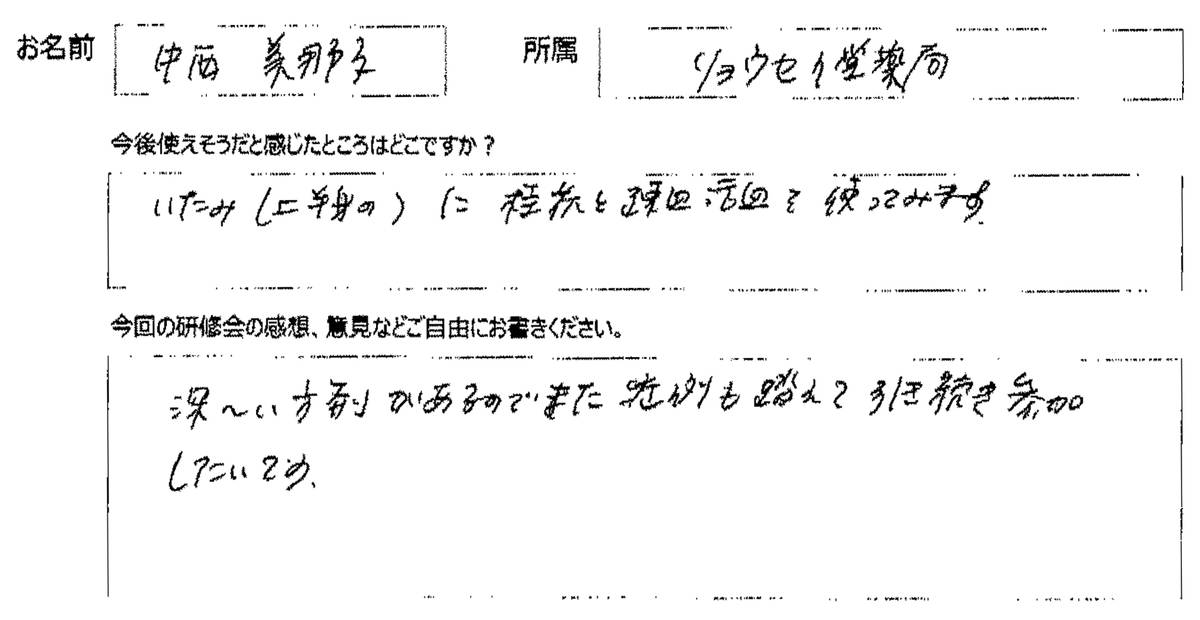 お名前 中西 美那子 所属 リョウセイ堂薬局
今後使えそうだと感じたところはどこですか？
いたみ(上半身の)に 桂枝と疎血活血を使ってみます。
今回の研修会の感想、意見などご自由にお書きください。
深〜い方剤があるのでまた症例も踏えて引き続き参加
したいです。